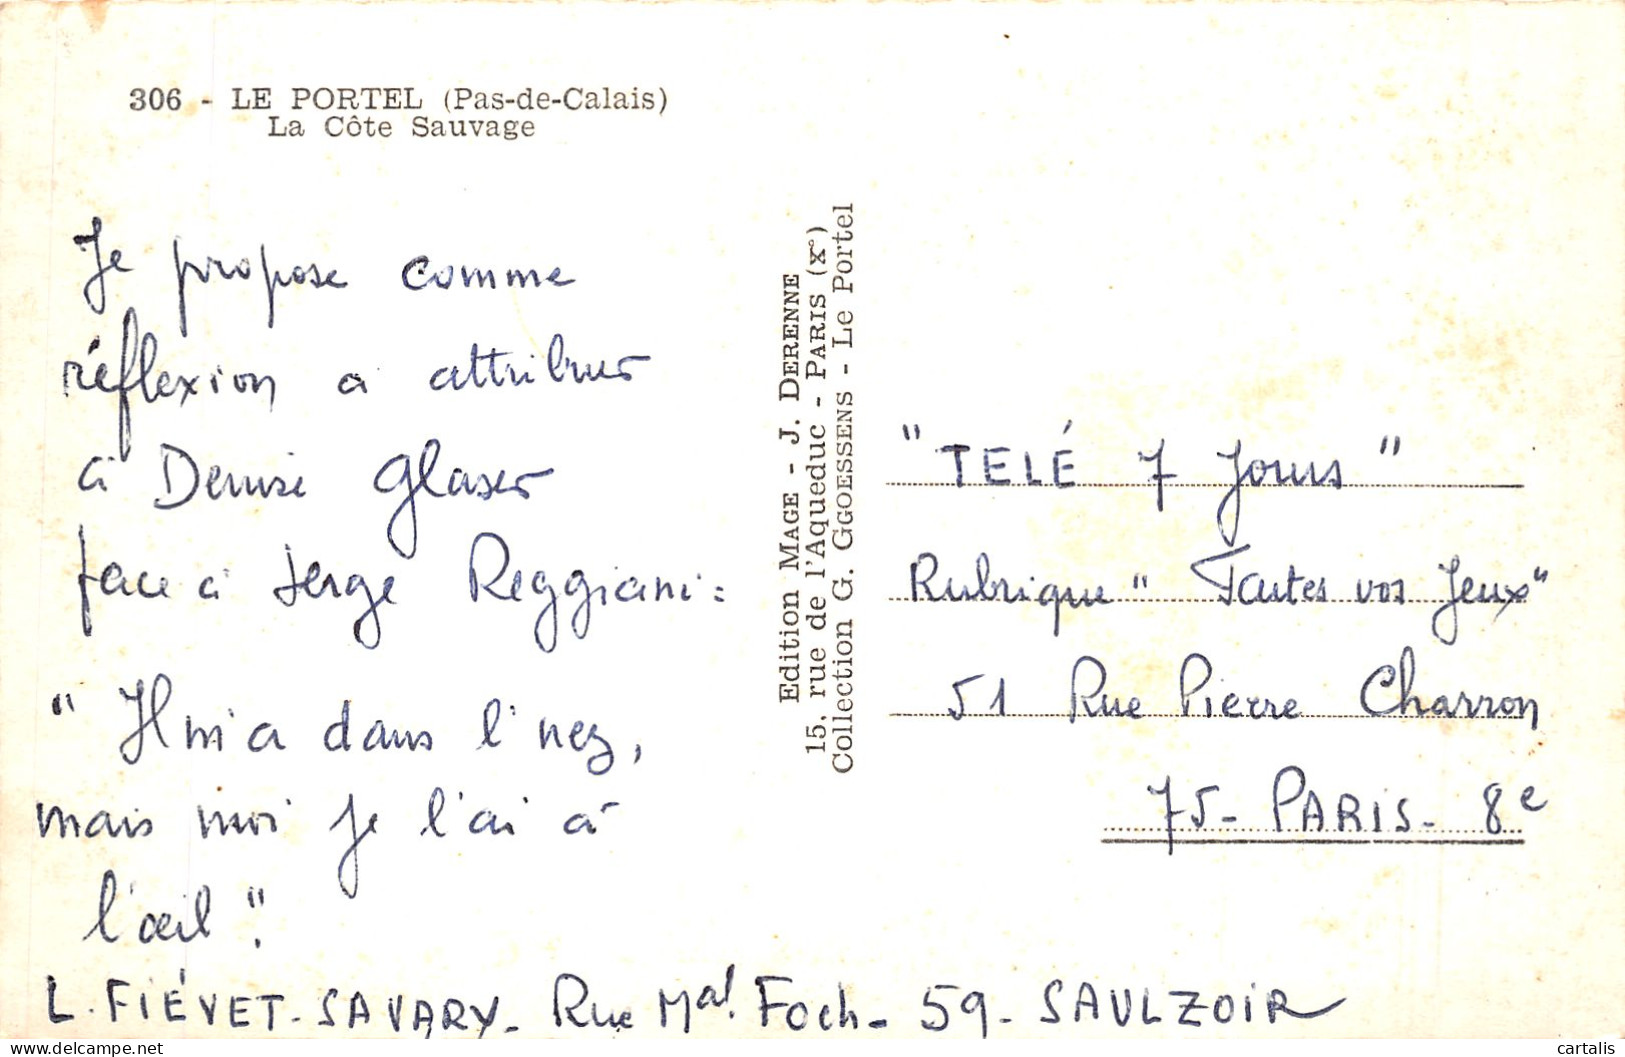 306 - LE PORTEL (Pas-de-Calais)
La Côte Sauvage
Je propose comme
réflexion à attribuer
à Denise Glaser
face à Serge Reggiani :
" Il m'a dans l' nez,
mais moi je l'ai à
l'œil ".
L. FIÉVET-SAVARY - Rue Mal. Foch - 59 - SAULZOIR
Edition MAGE - J. DERENNE
15, rue de l'Aqueduc - PARIS (Xe)
Collection G. GGOESSENS - Le Portel
" TELÉ 7 Jours "
Rubrique " Toutes vos Jeux "
51 Rue Pierre Charron
75 - PARIS - 8e
cartalis
www.delcampe.net